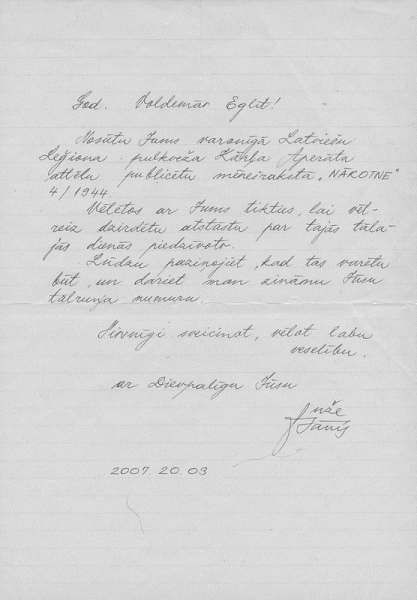 God. Voldemār Eglīt!
Nosūtu Jums varonīgā Latviešu
Leģiona pulkveža Kārļa Aperāta
attēlu publicētu mēnešrakstā „NĀKOTNE"
4/1944.
Vēlētos ar Jums tikties, lai vēl-
reiz dzirdētu atstāstu par tajās tāla-
jās dienās piedzīvoto.
Lūdzu paziņojiet, kad tas varētu
būt, un dariet man zināmu Jūsu
tālruņa numuru.
Sirsnīgi sveicinot, vēlot labu
veselību.
ar Dievpalīgu Jūsu
Jānis
2007.20.03